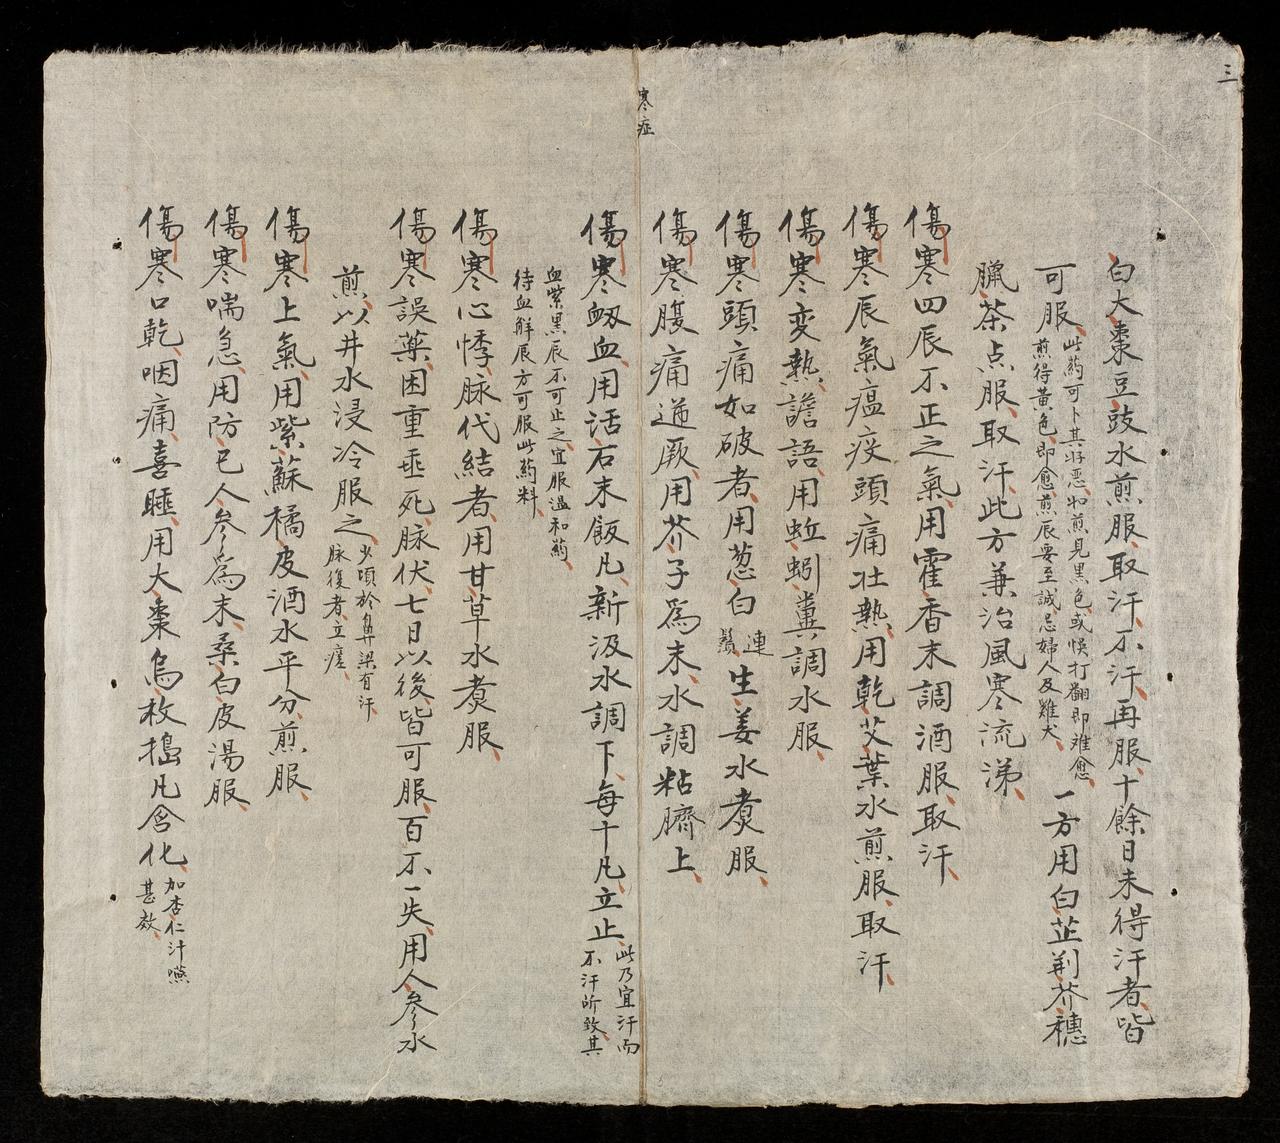 三
寒症
白大棗豆豉水煎服取汗不汗再服十餘日未得汗者皆
可服此葯可卜其将惡如煎見黑色或悮打翻即难愈
煎得黃色即愈煎辰要至誠忌婦人及雞犬
一方用白芷荆芥穗
臘茶点服取汗此方兼治風寒流涕
傷寒四辰不正之氣用霍香末調酒服取汗
傷寒辰氣瘟疫頭痛壮熱用乾艾葉水煎服取汗
傷寒变熱譫語用蚯蚓糞調水服
傷寒頭痛如破者用葱白連鬚生姜水煑服
傷寒腹痛逆厥用芥子為末水調粘臍上
傷寒衂血用活石末飯凡新汲水調下每十凡立止此乃宜汗而
不汗所致其
血紫黑辰不可止之宜服温和葯
待血鮮辰方可服此葯料
傷寒心悸脉代結者用甘草水煑服
傷寒誤薬困重垂死脉伏七日以後皆可服百不一失用人參水
煎以井水浸冷服之少頃於鼻梁有汗
脉復者立瘥
傷寒上氣用紫蘇橘皮酒水平分煎服
傷寒喘急用防已人參為末桑白皮湯服
傷寒口乾咽痛喜睡用大棗烏枚搗凡含化加杏仁汁嚥
甚效